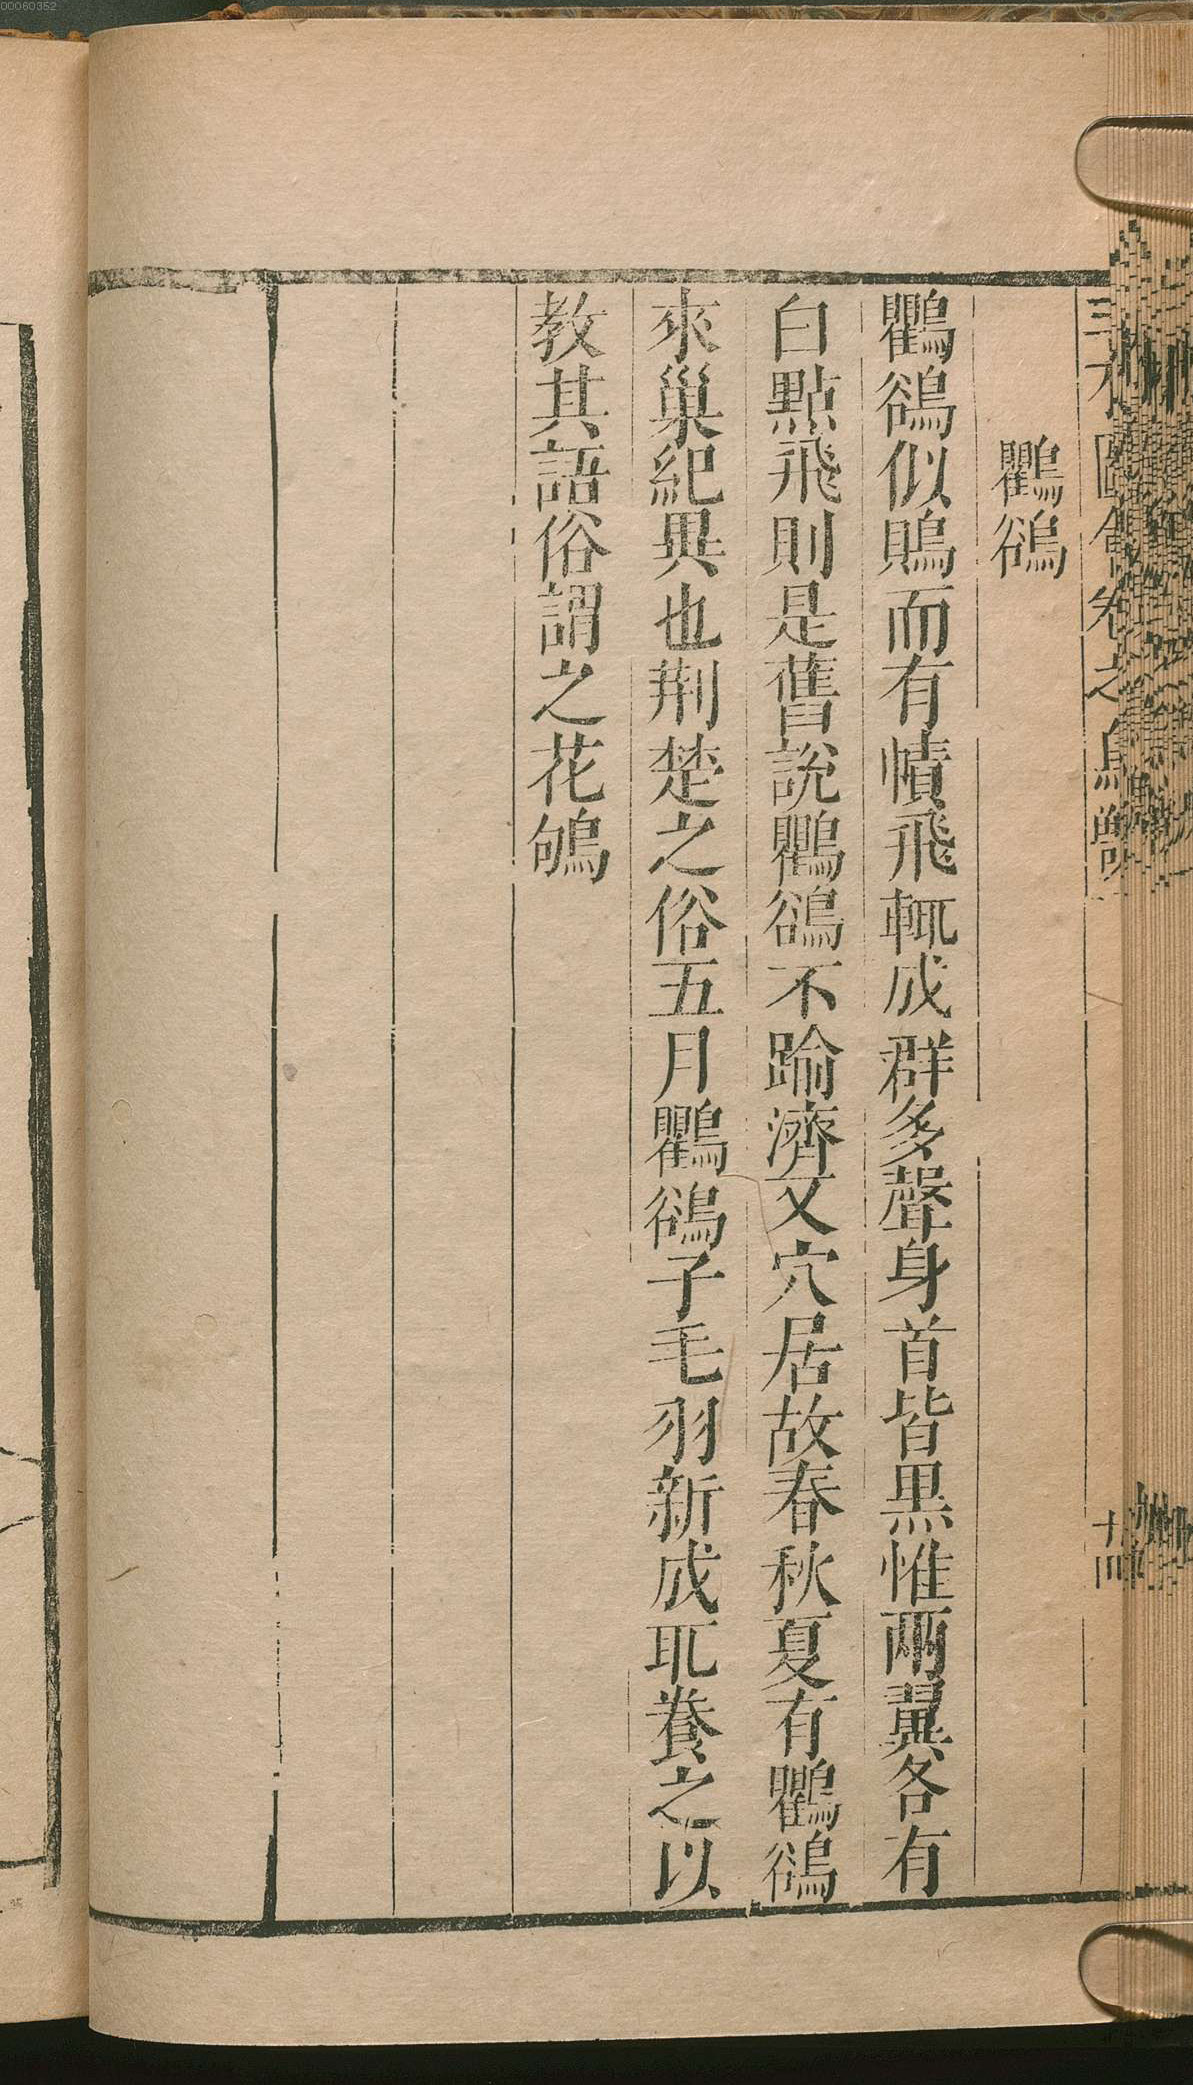 00060352
三才圖會卷之鳥獸
十四
鸜鵒
鸜鵒似鵙而有幘飛輒成群多聲身首皆黒惟兩翼各有
白點飛則是舊說鸜鵒不踰濟又穴居故春秋夏有鸜鵒
來巢紀異也荆楚之俗五月鸜鵒子毛羽新成取養之以
教其語俗謂之花鴝